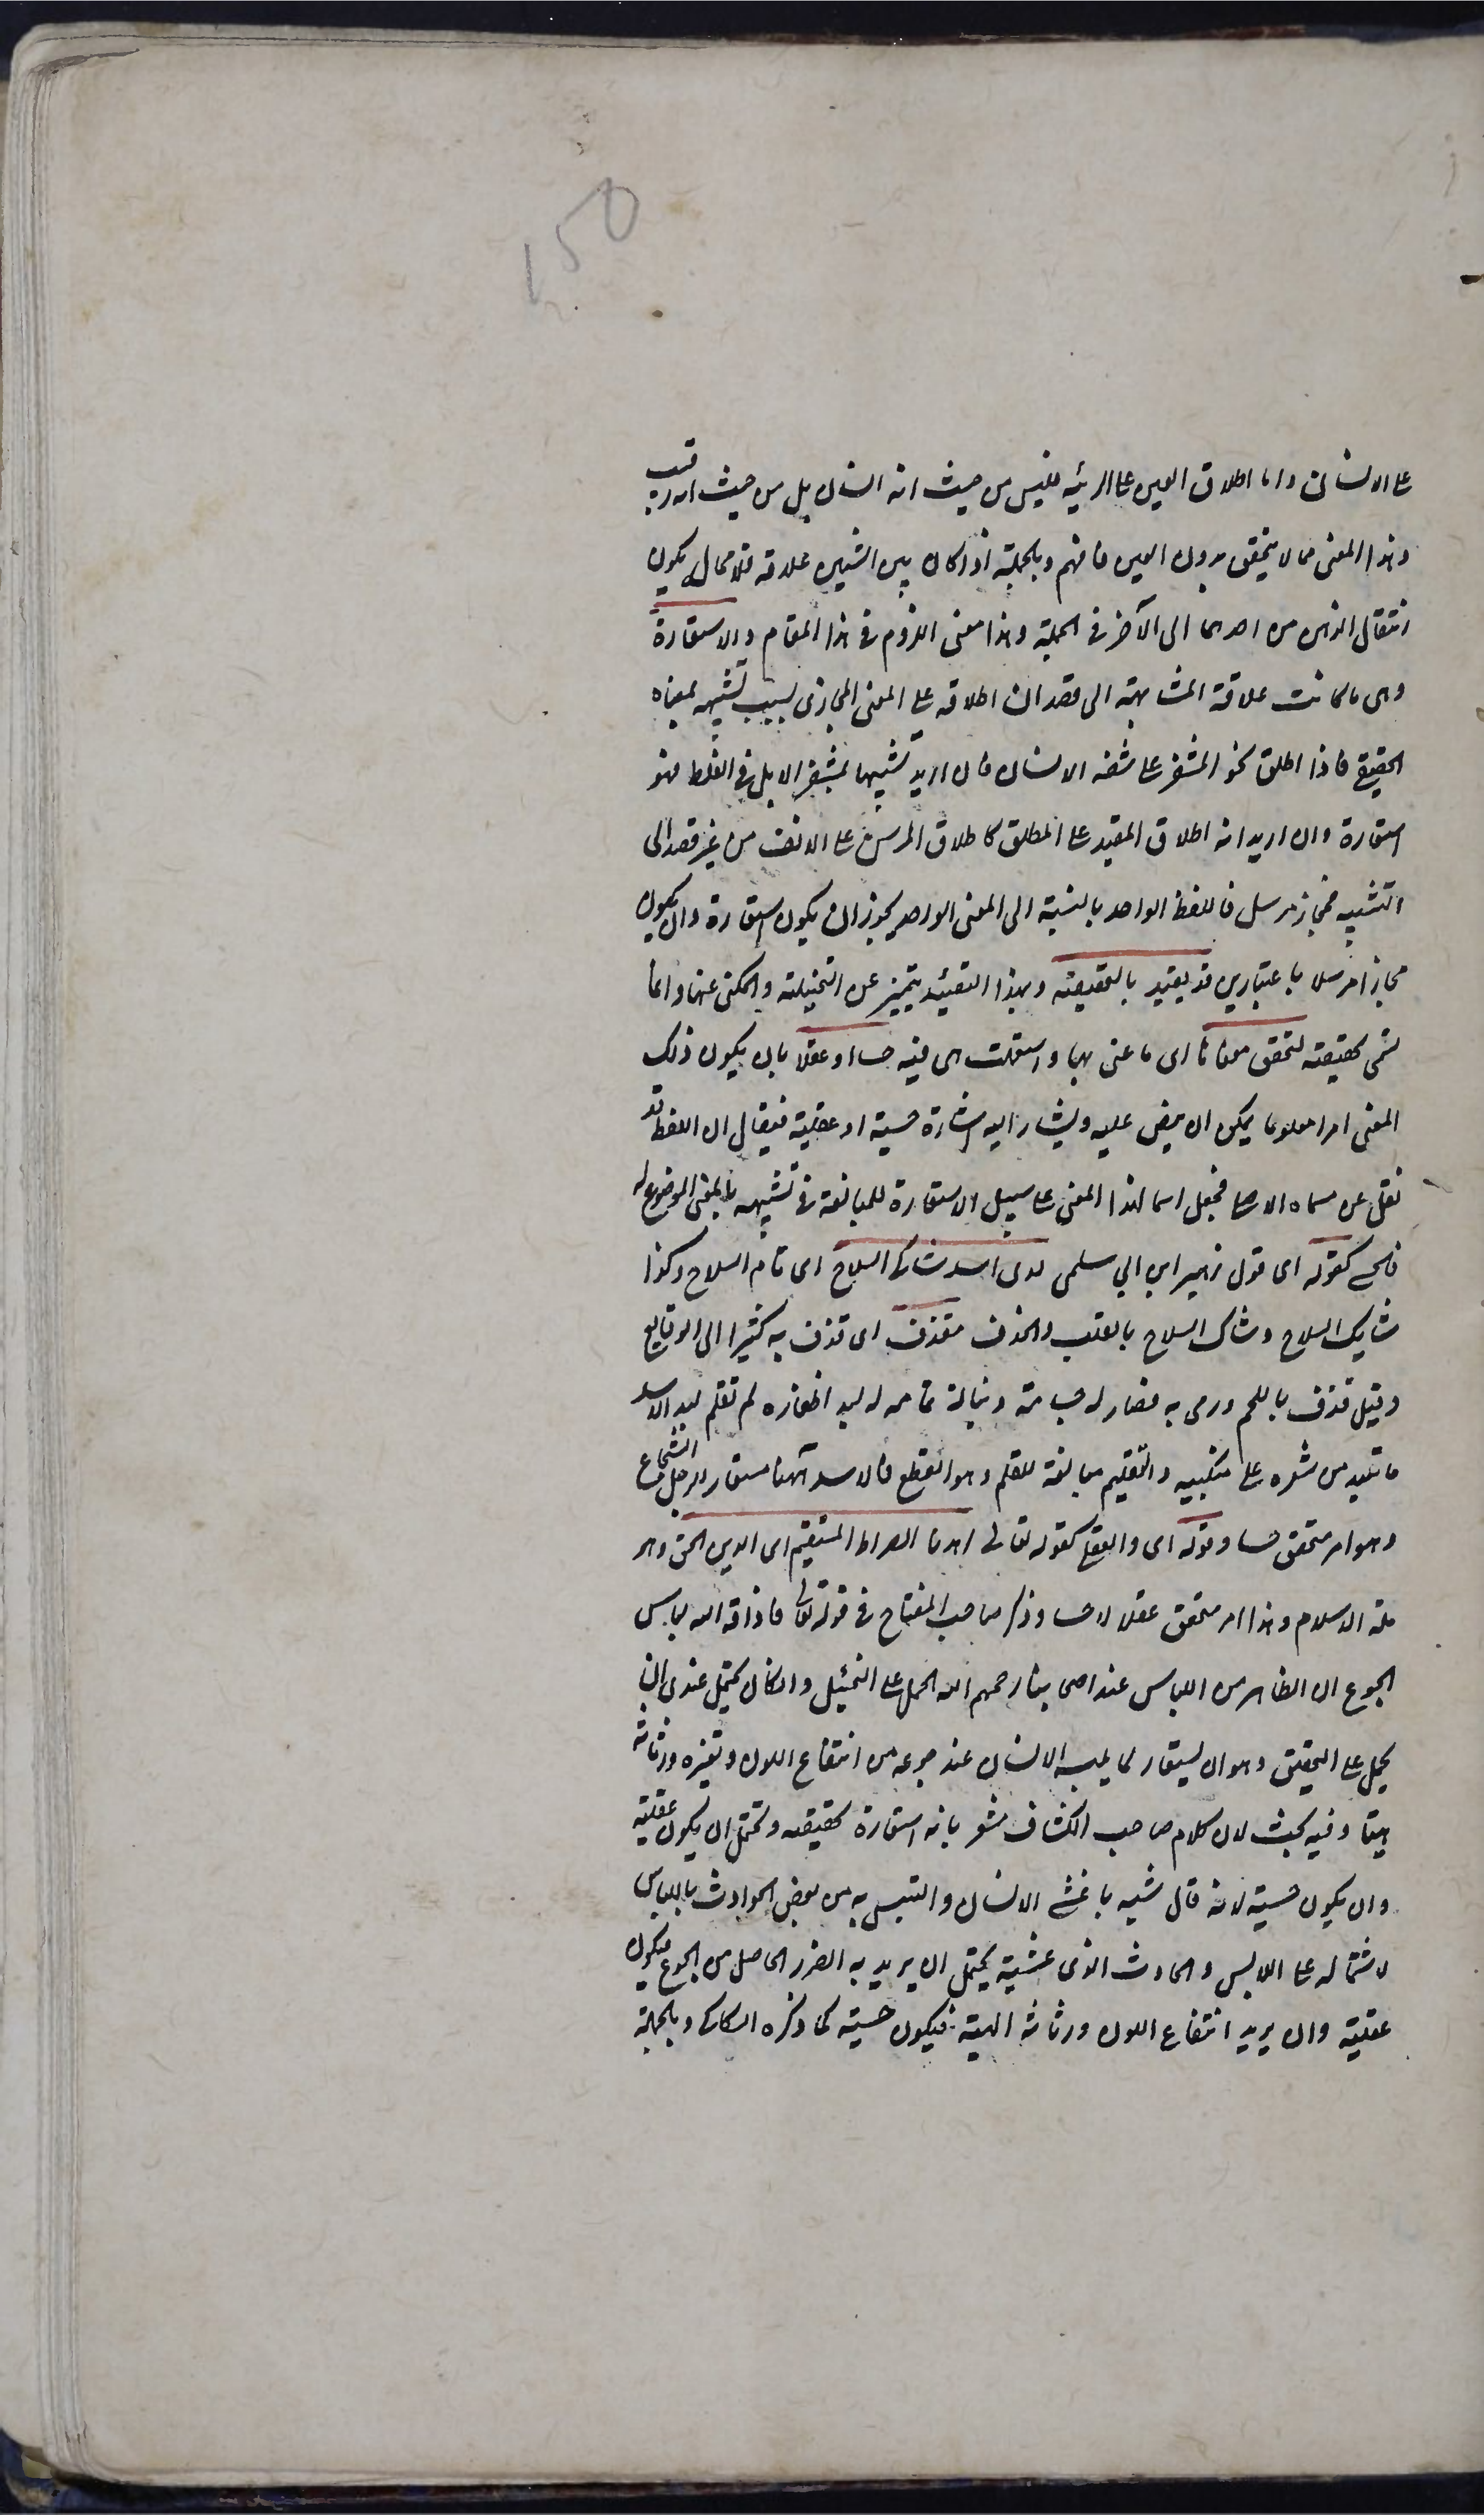 ١٥٥
على الانسان واما اطلاق العين على الربيئة فليس من حيث انه انسان بل من حيث انه رقيب
وهذا المعنى مما لا يتحقق بدون العين فافهم وبالجملة اذا كان بين الشيئين علاقة فلا محال يكون
انتقال الذهن من احدهما الى الآخر في الجملة وهذا معنى اللزوم في هذا المقام والاستعارة
وهي ما كانت علاقة المشابهة الى قصد ان اطلاقه على المعنى المجازى بسبب تشبيهه بمعناه
الحقيقي فاذا اطلق نحو المشفر على شفة الانسان فان اريد تشبيهها بمشفر الابل في الغلظ فهو
استعارة وان اريد انه اطلاق المقيد على المطلق كاطلاق المرسن على الانف من غير قصد الى
التشبيه فمجاز مرسل فاللفظ الواحد بالنسبة الى المعنى الواحد يجوز ان يكون استعارة وان يكون
مجازا مرسلا باعتبارين قد يقيد بالتحقيقية وبهذا التقييد يتميز عن التخييلية والمكنى عنها وانما
تسمى تحقيقية لتحقق معناها اى ما عنى بها واستعملت هى فيه حسا او عقلا بان يكون ذلك
المعنى امرا معلوما يمكن ان ينص عليه ويشار اليه اشارة حسية او عقلية فيقال ان اللفظ قد
نقل عن مسماه الاصلى فجعل اسما لهذا المعنى على سبيل الاستعارة للمبالغة في تشبيهه بالمعنى الموضوع له
فالحسى كقوله اى قول زهير ابن ابي سلمى لدى اسد شاكى السلاح اى تام السلاح وكذا
شايك السلاح وشاك السلاح بالقلب والحذف مقذف اى قذف به كثيرا الى الوقايع
وقيل قذف باللحم ورمى به فصار له جسامة ونبالة تمامه له لبد اظفاره لم تقلم لبد الاسد
ما تلبد من شعره على منكبيه والتقليم مبالغة للقلم وهو القطع فالاسد ههنا مستعار للرجل الشجاع
وهو امر متحقق حسا وقوله اى والعقلى كقوله تعالى اهدنا الصراط المستقيم اى الدين الحق وهو
ملة الاسلام وهذا امر متحقق عقلا لا حسا وذكر صاحب المفتاح في قوله تعالى فاذاقه الله لباس
الجوع ان الظاهر من اللباس عند اصحابنا رحمهم الله الحمل على التخييل وان كان يحتمل عندى ان
يحمل على التحقيق وهو ان يستعار لما يلبسه الانسان عند جوعه من انتقاع اللون وتغيره ورثاثة
هيئة وفيه بحث لان كلام صاحب الكشاف مشعر بانه استعارة تحقيقية ويحتمل ان يكون عقلية
وان يكون حسية لانه قال شبه ما غشى الانسان والتبس به من بعض الحوادث باللباس
لاشتماله على اللابس والحادث الذى غشيه يحتمل ان يريد به الضرر الحاصل من الجوع فيكون
عقلية وان يريد انتقاع اللون ورثاثة الهيئة فيكون حسية كما ذكره السكاكى وبالجملة